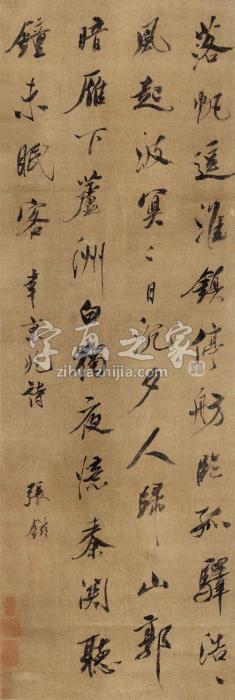 落帆逗淮鎮停舫臨孤驛浩〻
風起波冥〻日沉夕人歸山郭
暗雁下蘆洲白獨夜憶秦関聽
鐘未眠客 韋京兆詩 張
字画之家
zihuazhijia.com